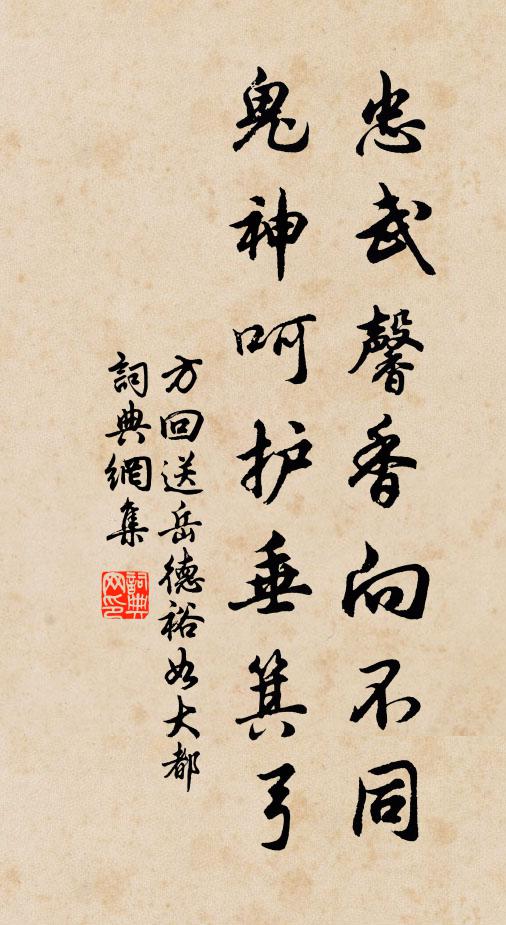 忠武馨香向不同
鬼神呵护垂箕弓
方回送岳德裕如大都
詞典網集
詞典网印